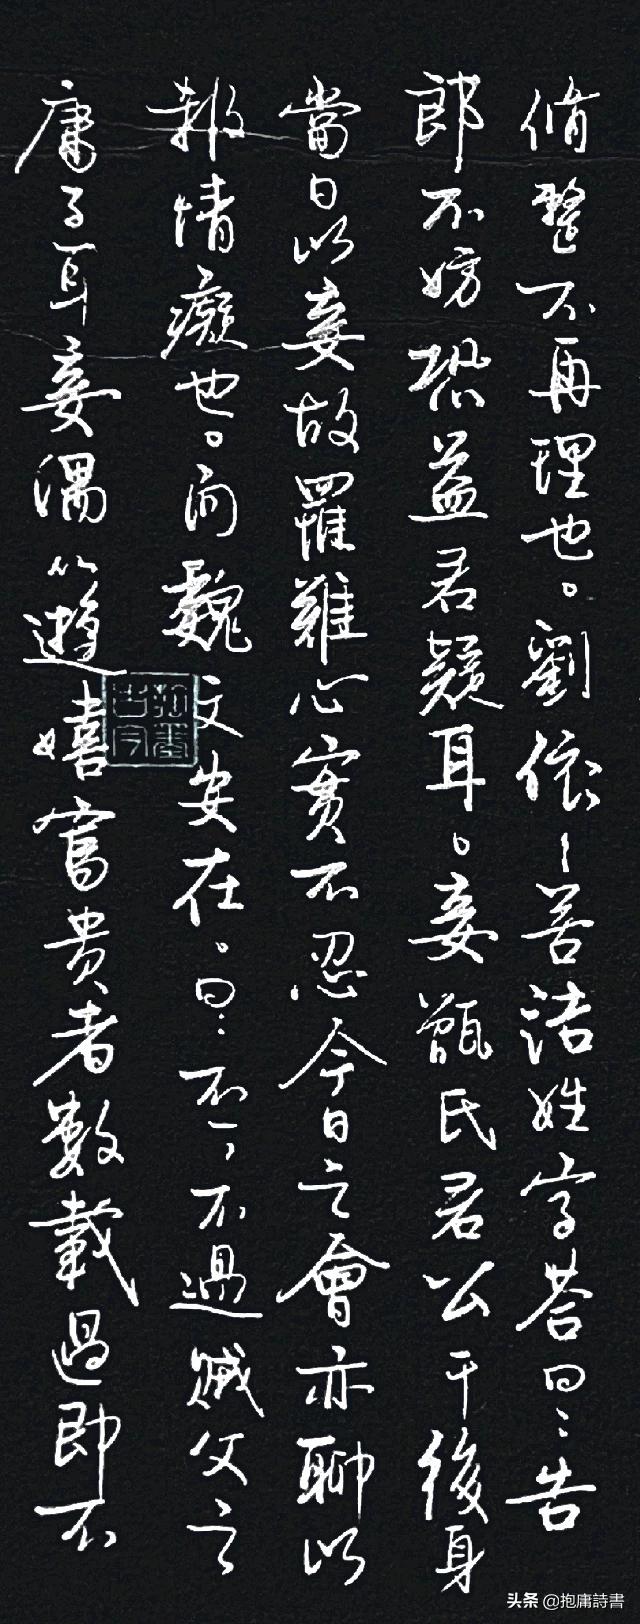 脩整不再理也。劉依〻善詰姓字荅曰〻告
郎不妨恐益君疑耳。妾甄氏君公干後身
當日以妾故罹難心實不忍今日之會亦聊以
報情癡也。问魏文安在。曰〻丕〻不過賊父之
庸子耳妾偶從遊嬉富贵者數載過即不
头条 @抱庸詩書